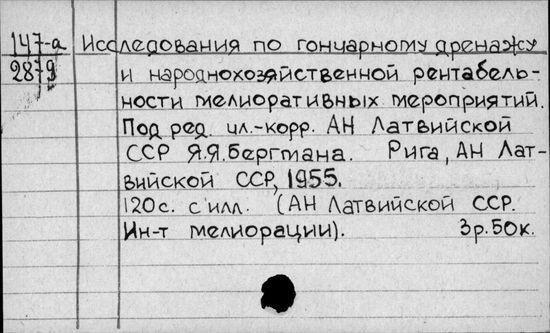 147-а Исследования по гончарному дренажу
2879 и народнохозяйственной рентабель-
ности мелиоративных мероприятий.
Под ред. чл.-корр. АН Латвийской
ССР Я.Я.Бергмана. Рига, АН Лат-
вийской ССР, 1955.
120с. с илл. (АН Латвийской ССР.
Ин-т мелиорации). 3р.50к.